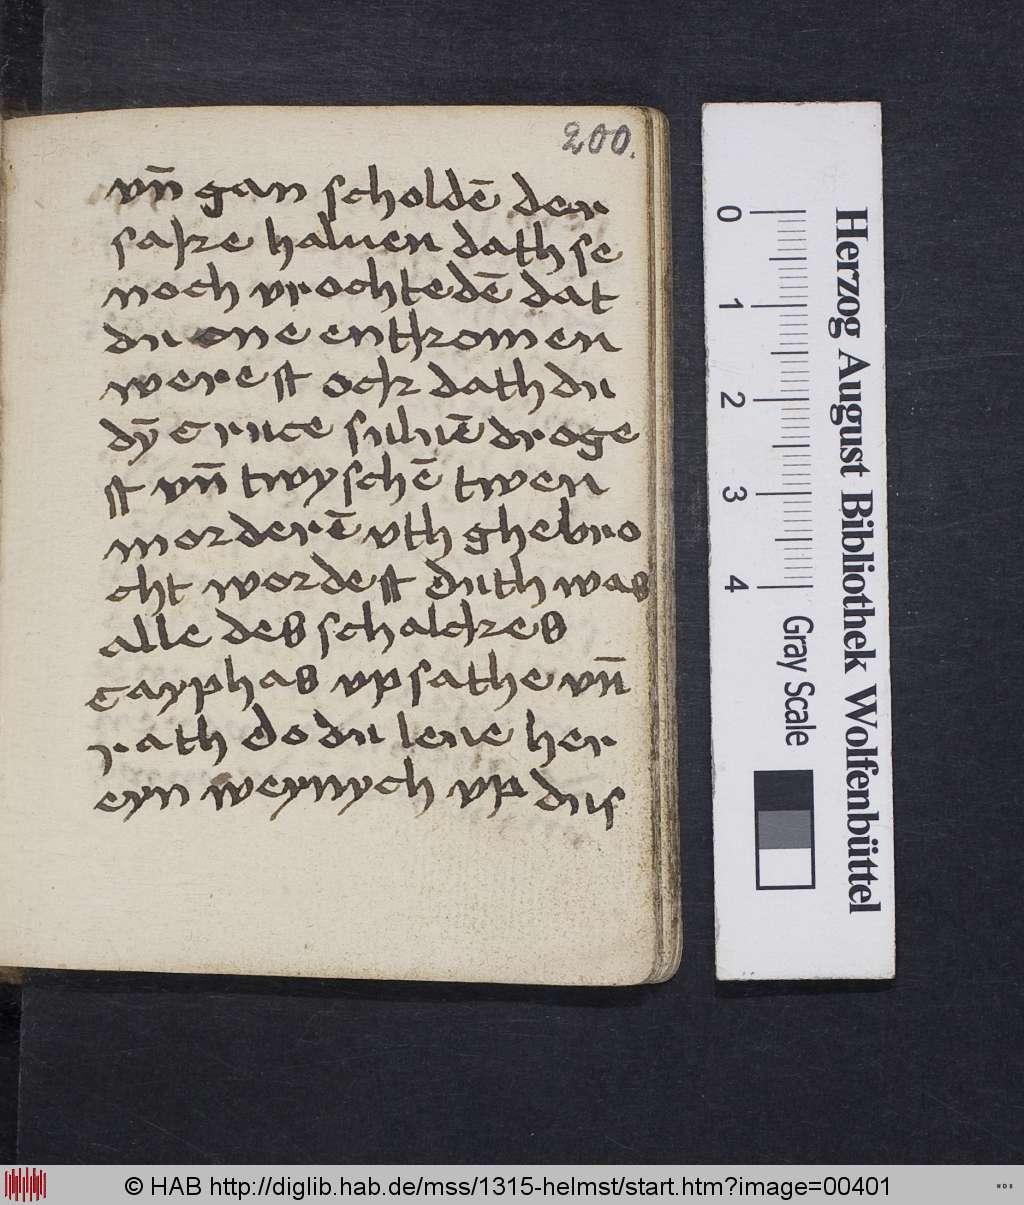 200.
vn̄ gan scholdē der
sake haluen dath se
noch vrochtedē dat
du one entkomen
werest ock dath du
dȳ cruce suluē droge
st vn̄ twyschē twen
morderē vth ghebro
cht wordest duth was
alle des schalckes
cayphas vpsathe vn̄
rath do du leue her
eyn weynych vp dus
0 1 2 3 4
Gray Scale
Herzog August Bibliothek Wolfenbüttel
© HAB http://diglib.hab.de/mss/1315-helmst/start.htm?image=00401